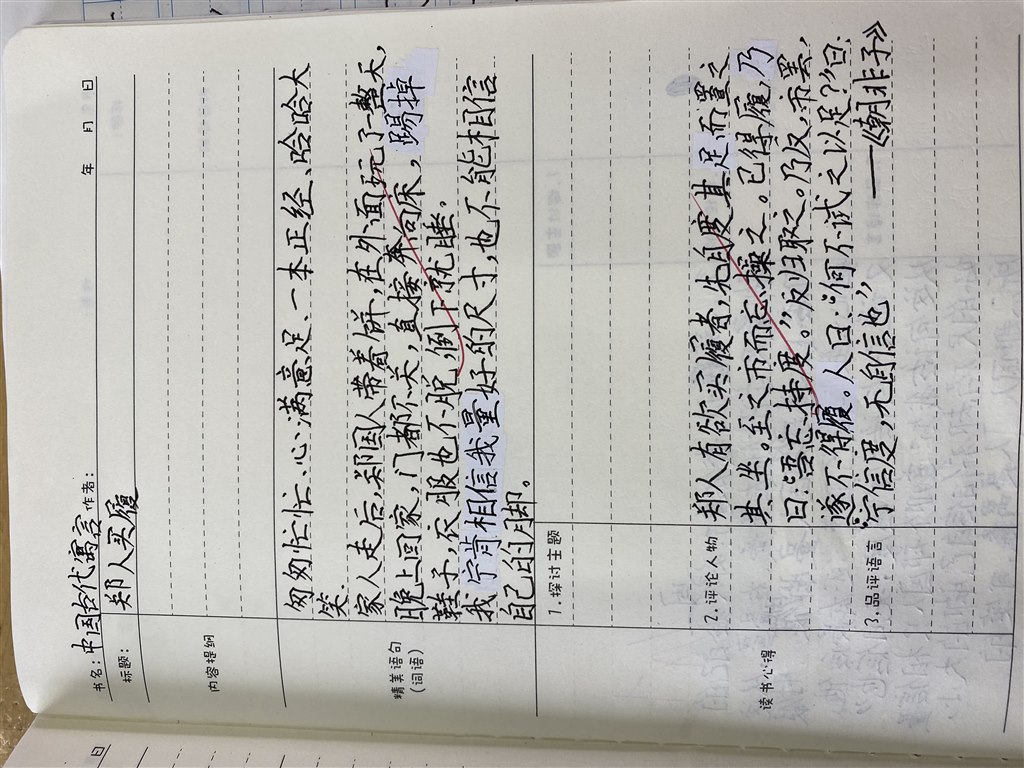 书名：中国古代寓言 作者： 年 月 日
标题： 郑人买履
内容提纲
精美语句
（词语）
匆匆忙忙、心满意足、一本正经、哈哈大
笑.
家人走后，郑国人带着饼，在外面玩了一整天，
晚上回家，门都不关，直接奔向床，踢掉
鞋子，衣服也不脱，倒下就睡。
我宁肯相信我量好的尺寸，也不能相信
自己的脚。
读书心得
1.探讨主题
2.评论人物
3.品评语言
郑人有欲买履者，先自度其足而置之
其坐。至之市而忘操之。已得履，乃
曰：“吾忘持度。”反归取之。乃反，市罢，
遂不得履。人曰：“何不试之以足？”曰：
“宁信度，无自信也”
——《韩非子》
日